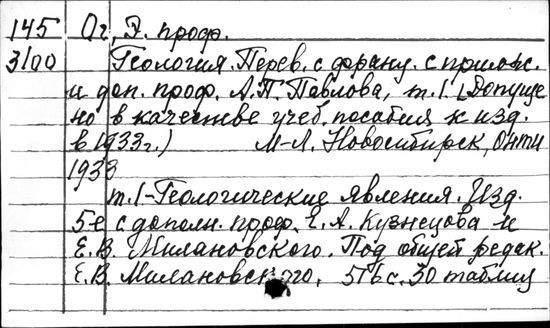 145 Ог, Э. проф.
3100 Геология. Перев. с франц. с прилож.
и доп. проф. А.П. Павлова, т. I. (Допуще
но в качестве учеб. пособия к изд.
в 1933г.) М-Л. Новосибирск, Онти
1933
т. I-Геологические явления. Изд.
5-е с дополн. проф. А. Кузнецова и
Е.В. Милановского. Под общей редак.
Е.В. Милановского. с. 30 таблиц